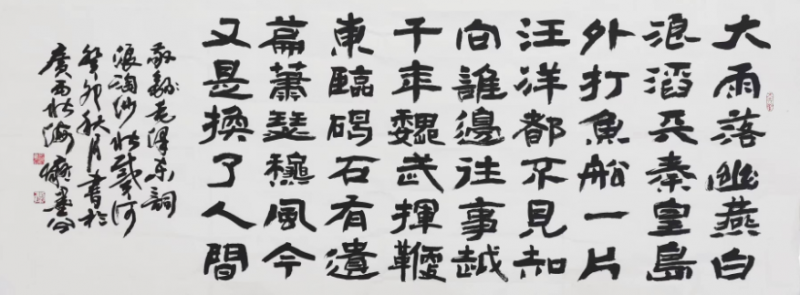 大雨落幽燕白
浪滔天秦皇島
外打魚船一片
汪洋都不見知
向誰邊往事越
千年魏武揮鞭
東臨碣石有遺
篇蕭瑟穐風今
又是換了人間
敬錄毛澤東詞
浪淘沙北戴河
癸卯秋月書於
廣西北海